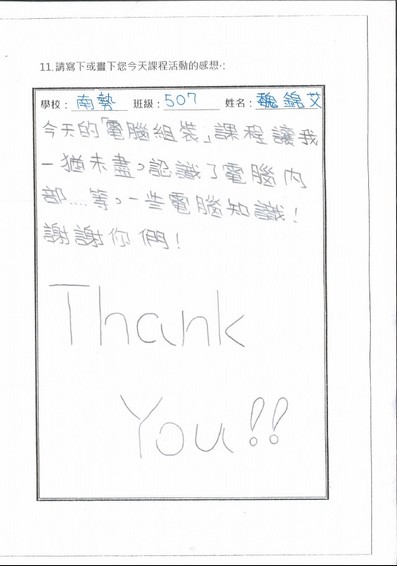 11.請寫下或畫下您今天課程活動的感想:
學校：南勢 班級：507 姓名：魏錦艾
今天的「電腦組裝」課程讓我
一猶未盡，認識了電腦內
部....等，一些電腦知識！
謝謝你們！
Thank
You!!